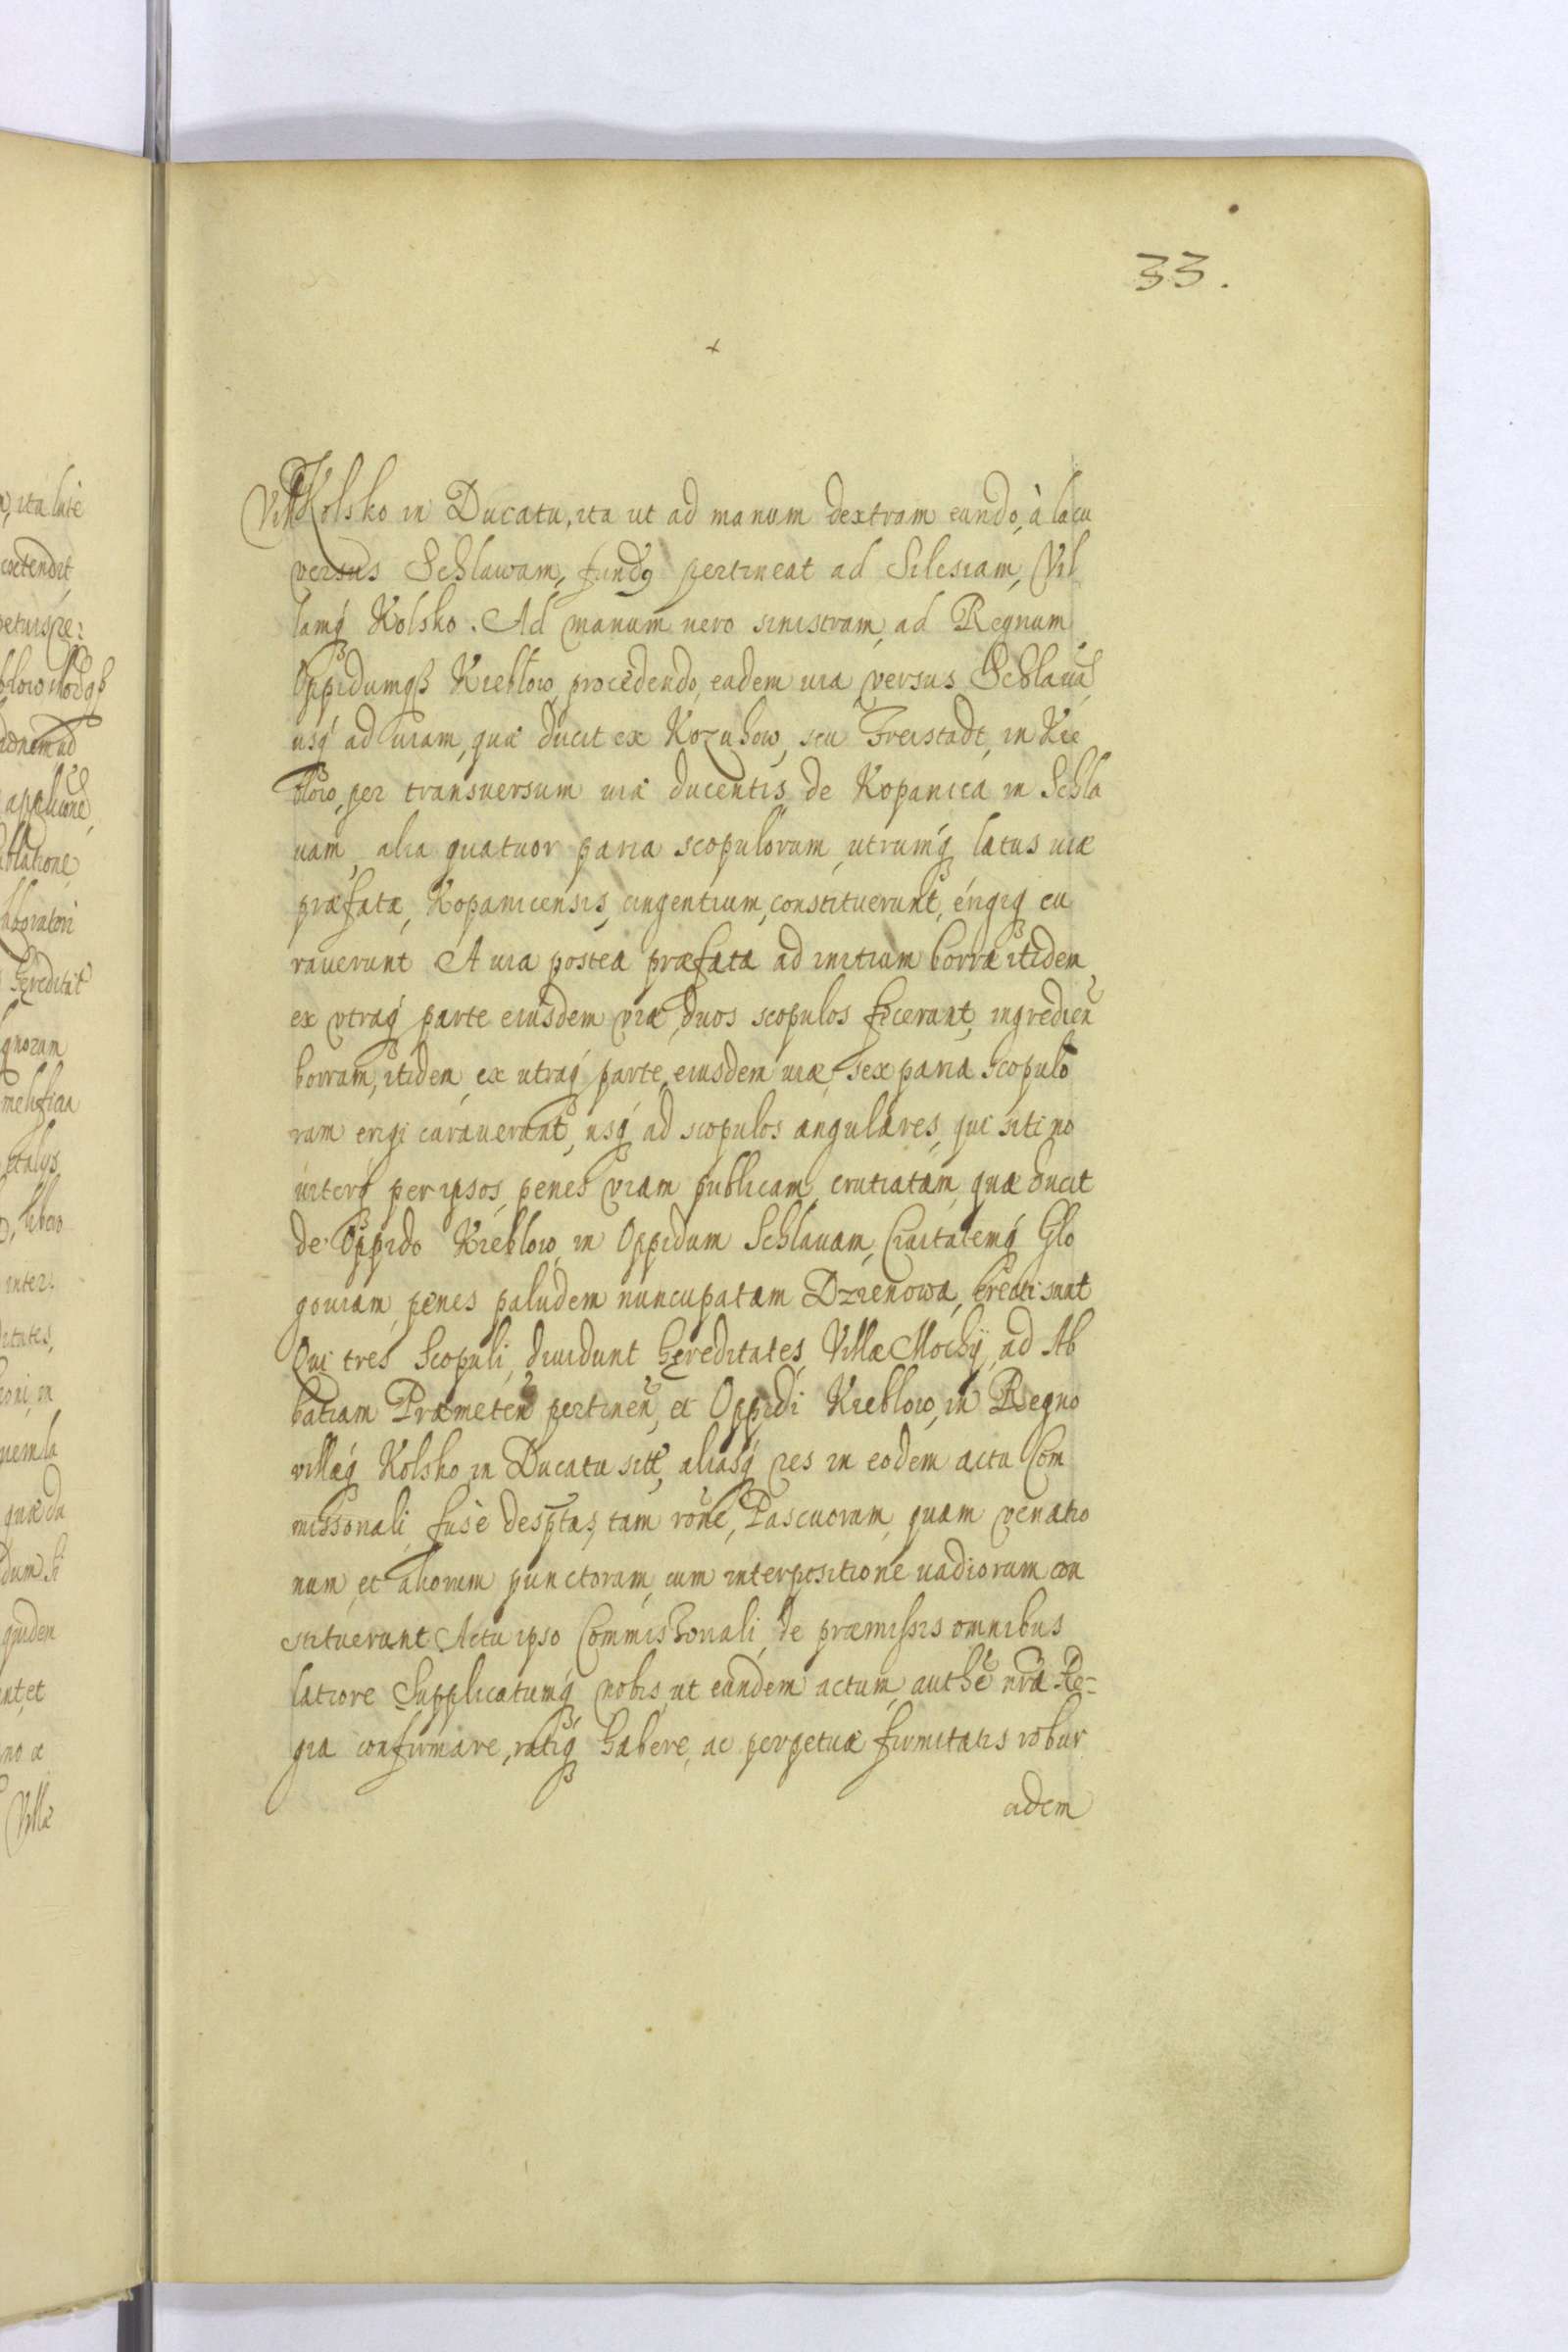 33.
Villæ Kolsko in Ducatu, ita ut ad manum dextram eundo, à lacu
versus Schlawam, fundꝯ pertineat ad Silesiam, Vil
lamq́ Kolsko. Ad manum vero sinistram, ad Regnum
Oppidumqꝫ Kieblow, procedendo, eadem uia versus Schlauã
usq́ ad uiam, quæ ducit ex Kozuhow, seu Freistadt, in Kie
blow, per transuersum uiæ ducentis de Kopanica in Schla
uam, alia quatuor paria scopulorum, utrumq́ latus uiæ
præfatæ, Kopanicensis, cingentium, constituerunt, erigiq́ cu
rauerunt A uia postea præfata ad initium borræ itidem
ex vtraq́ parte eiusdem viæ, duos scopulos fecerunt, ingredien̄
borram, itidem, ex utraq́ parte, eiusdem uiæ, sex paria scopulo
rum erigi curauerunt, usq́ ad scopulos angulares, qui siti no
uiterq́ per ipsos, penes viam publicam, cruciatam, quæ ducit
de Oppido Kieblow, in Oppidum Schlauam, Ciuitatemq́ Glo
gouiam, penes paludem nuncupatam Dzienowa, erecti sunt
Qui tres Scopuli, diuidunt hæreditates, Villæ Mochÿ, ad Ab
batiam Præmeten̄ pertinen̄, et Oppidi Kieblow, in Regno
villæq́ Kolsko, in Ducatu sitt, aliasq́ res in eodem actu Com
missonali, fusè desptas, tam rōne, Pascuorum, quam venatio
num, et aliorum punctorum, cum interpositione uadiorum con
stituerunt Actu ipso Commissonali, de præmissis omnibus
latiore Supplicatumq́ nobis, ut eundem actum, authē nrã Re-
gia confirmare, ratūq́ habere, ac perpetuæ firmitatis robur
adem